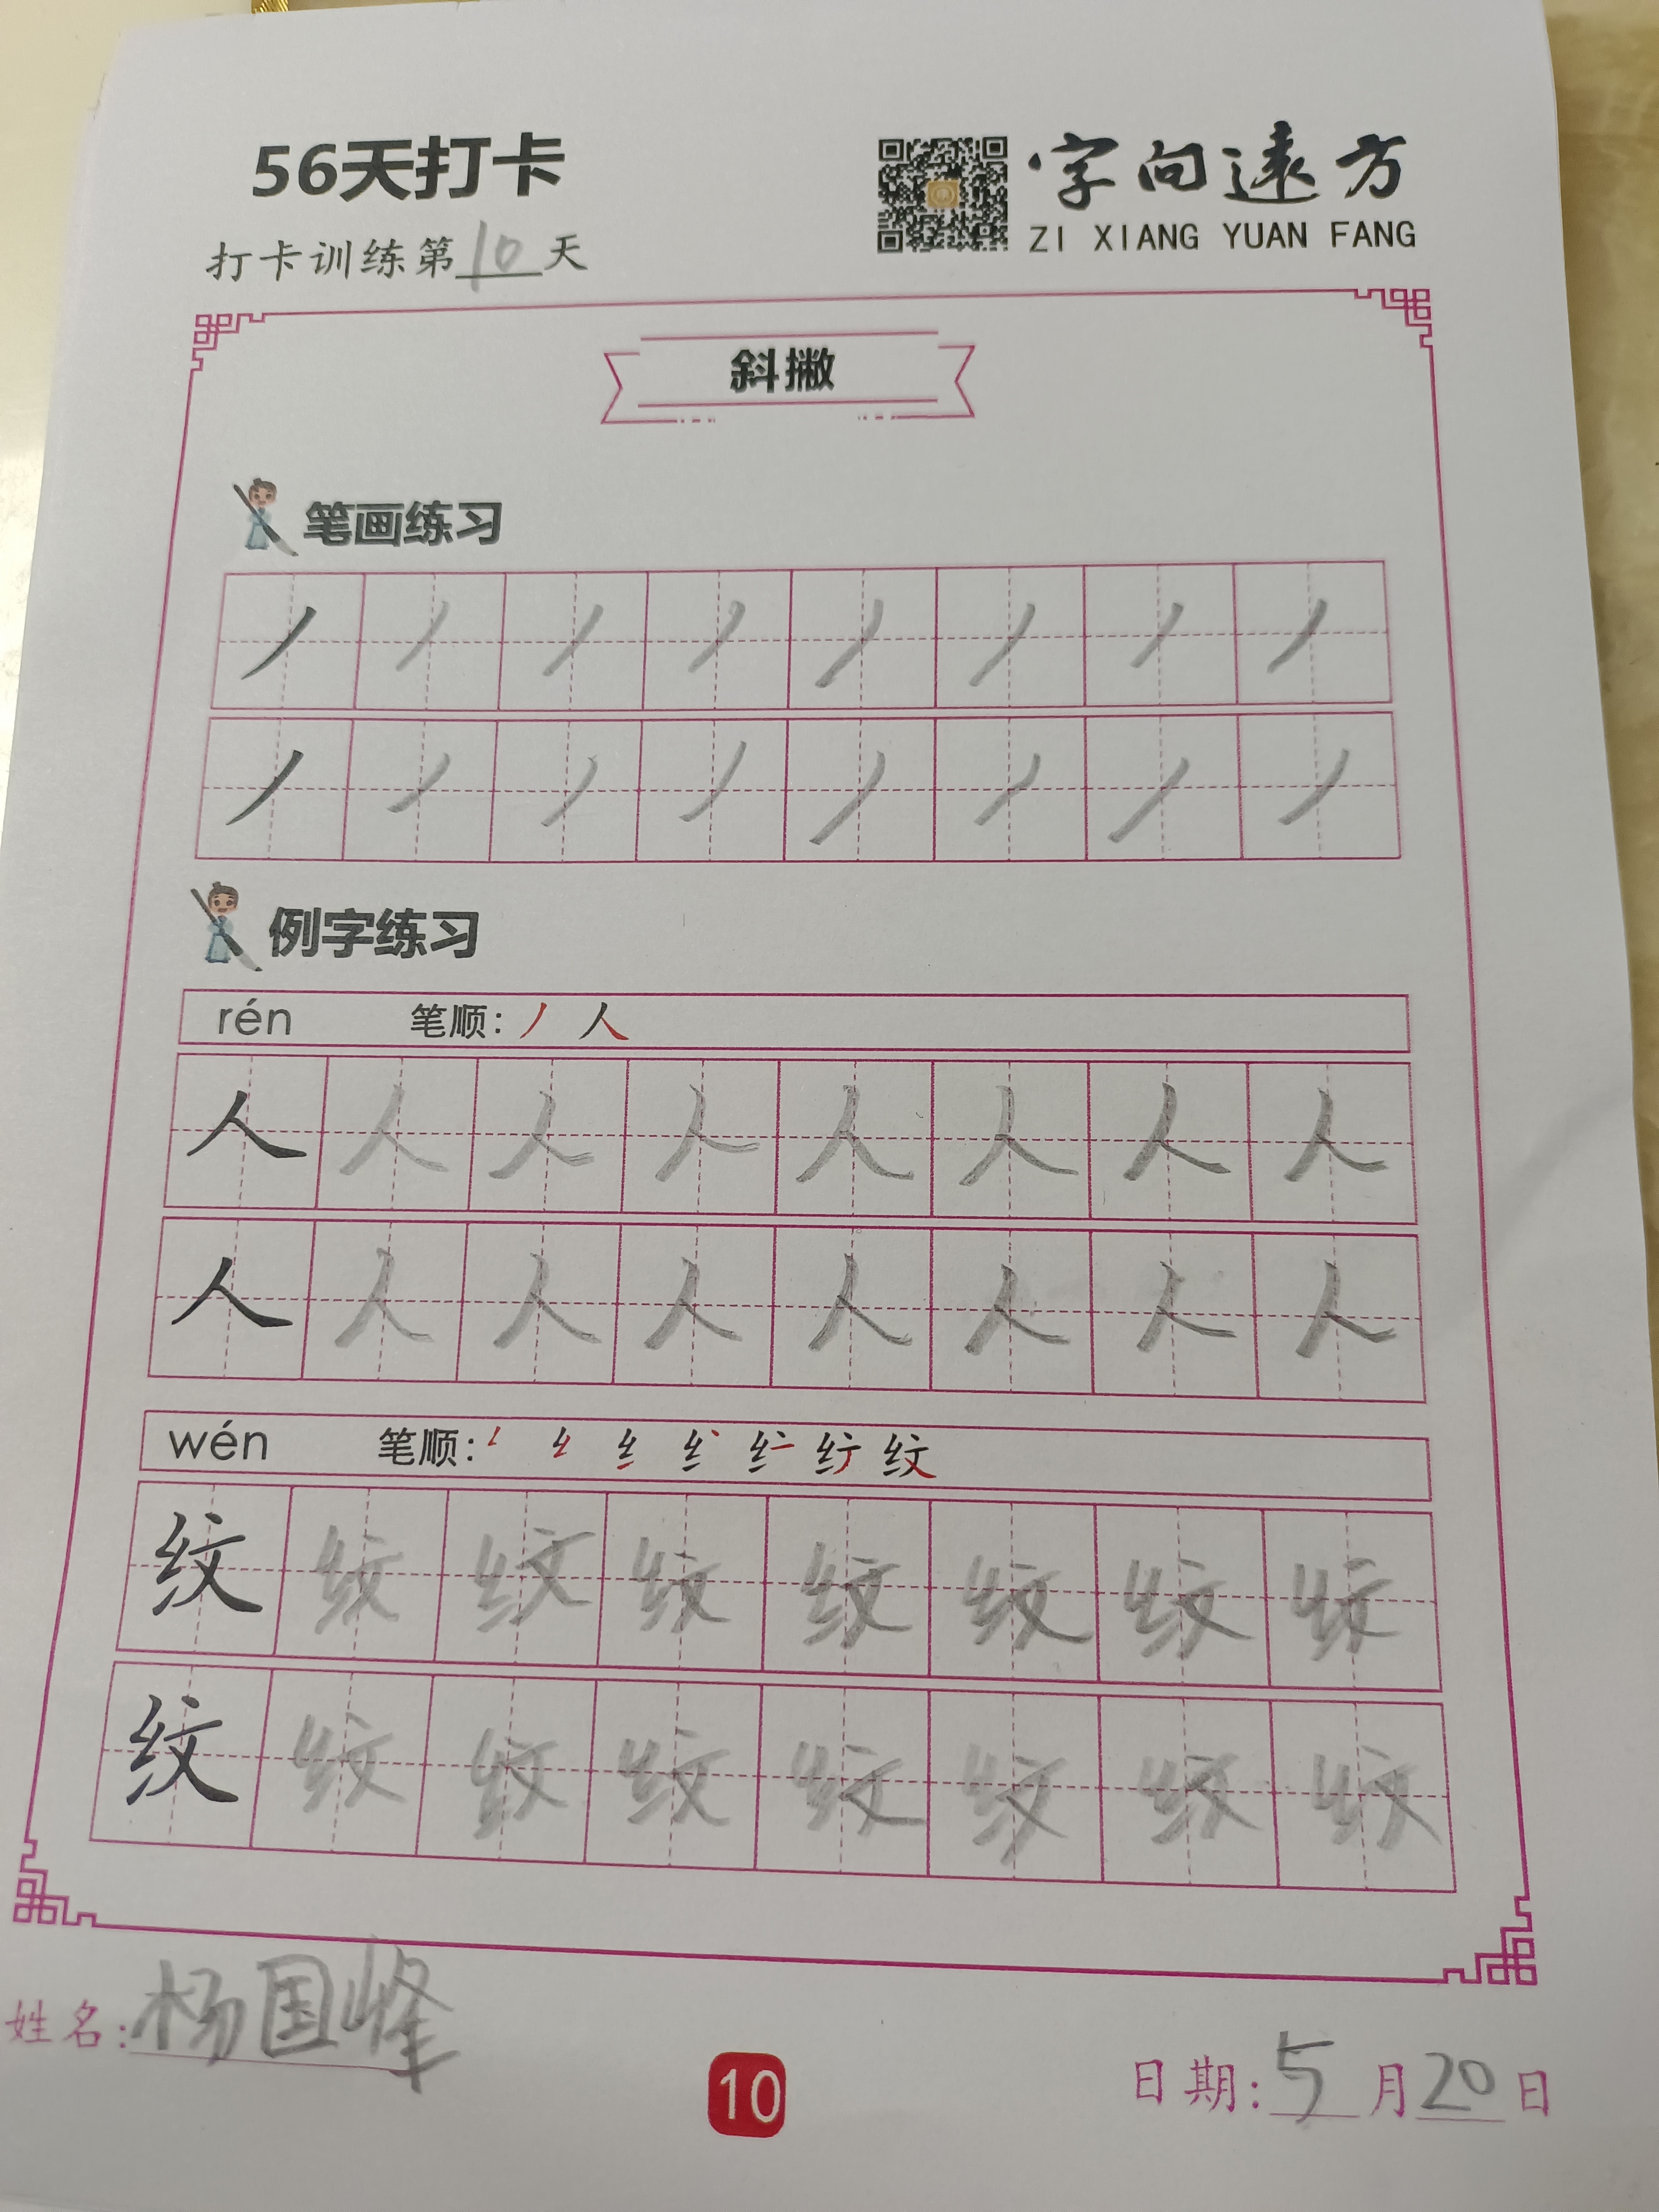 56天打卡
字向遠方
ZI XIANG YUAN FANG
打卡训练第10天
斜撇
笔画练习
丿丿丿丿丿丿丿丿
丿丿丿丿丿丿丿丿
例字练习
rén 笔顺：丿 人
人人人人人人人人
人人人人人人人人
wén 笔顺： 纹
纹纹纹纹纹纹纹纹
纹纹纹纹纹纹纹纹
姓名：杨国峰
10
日期：5月20日